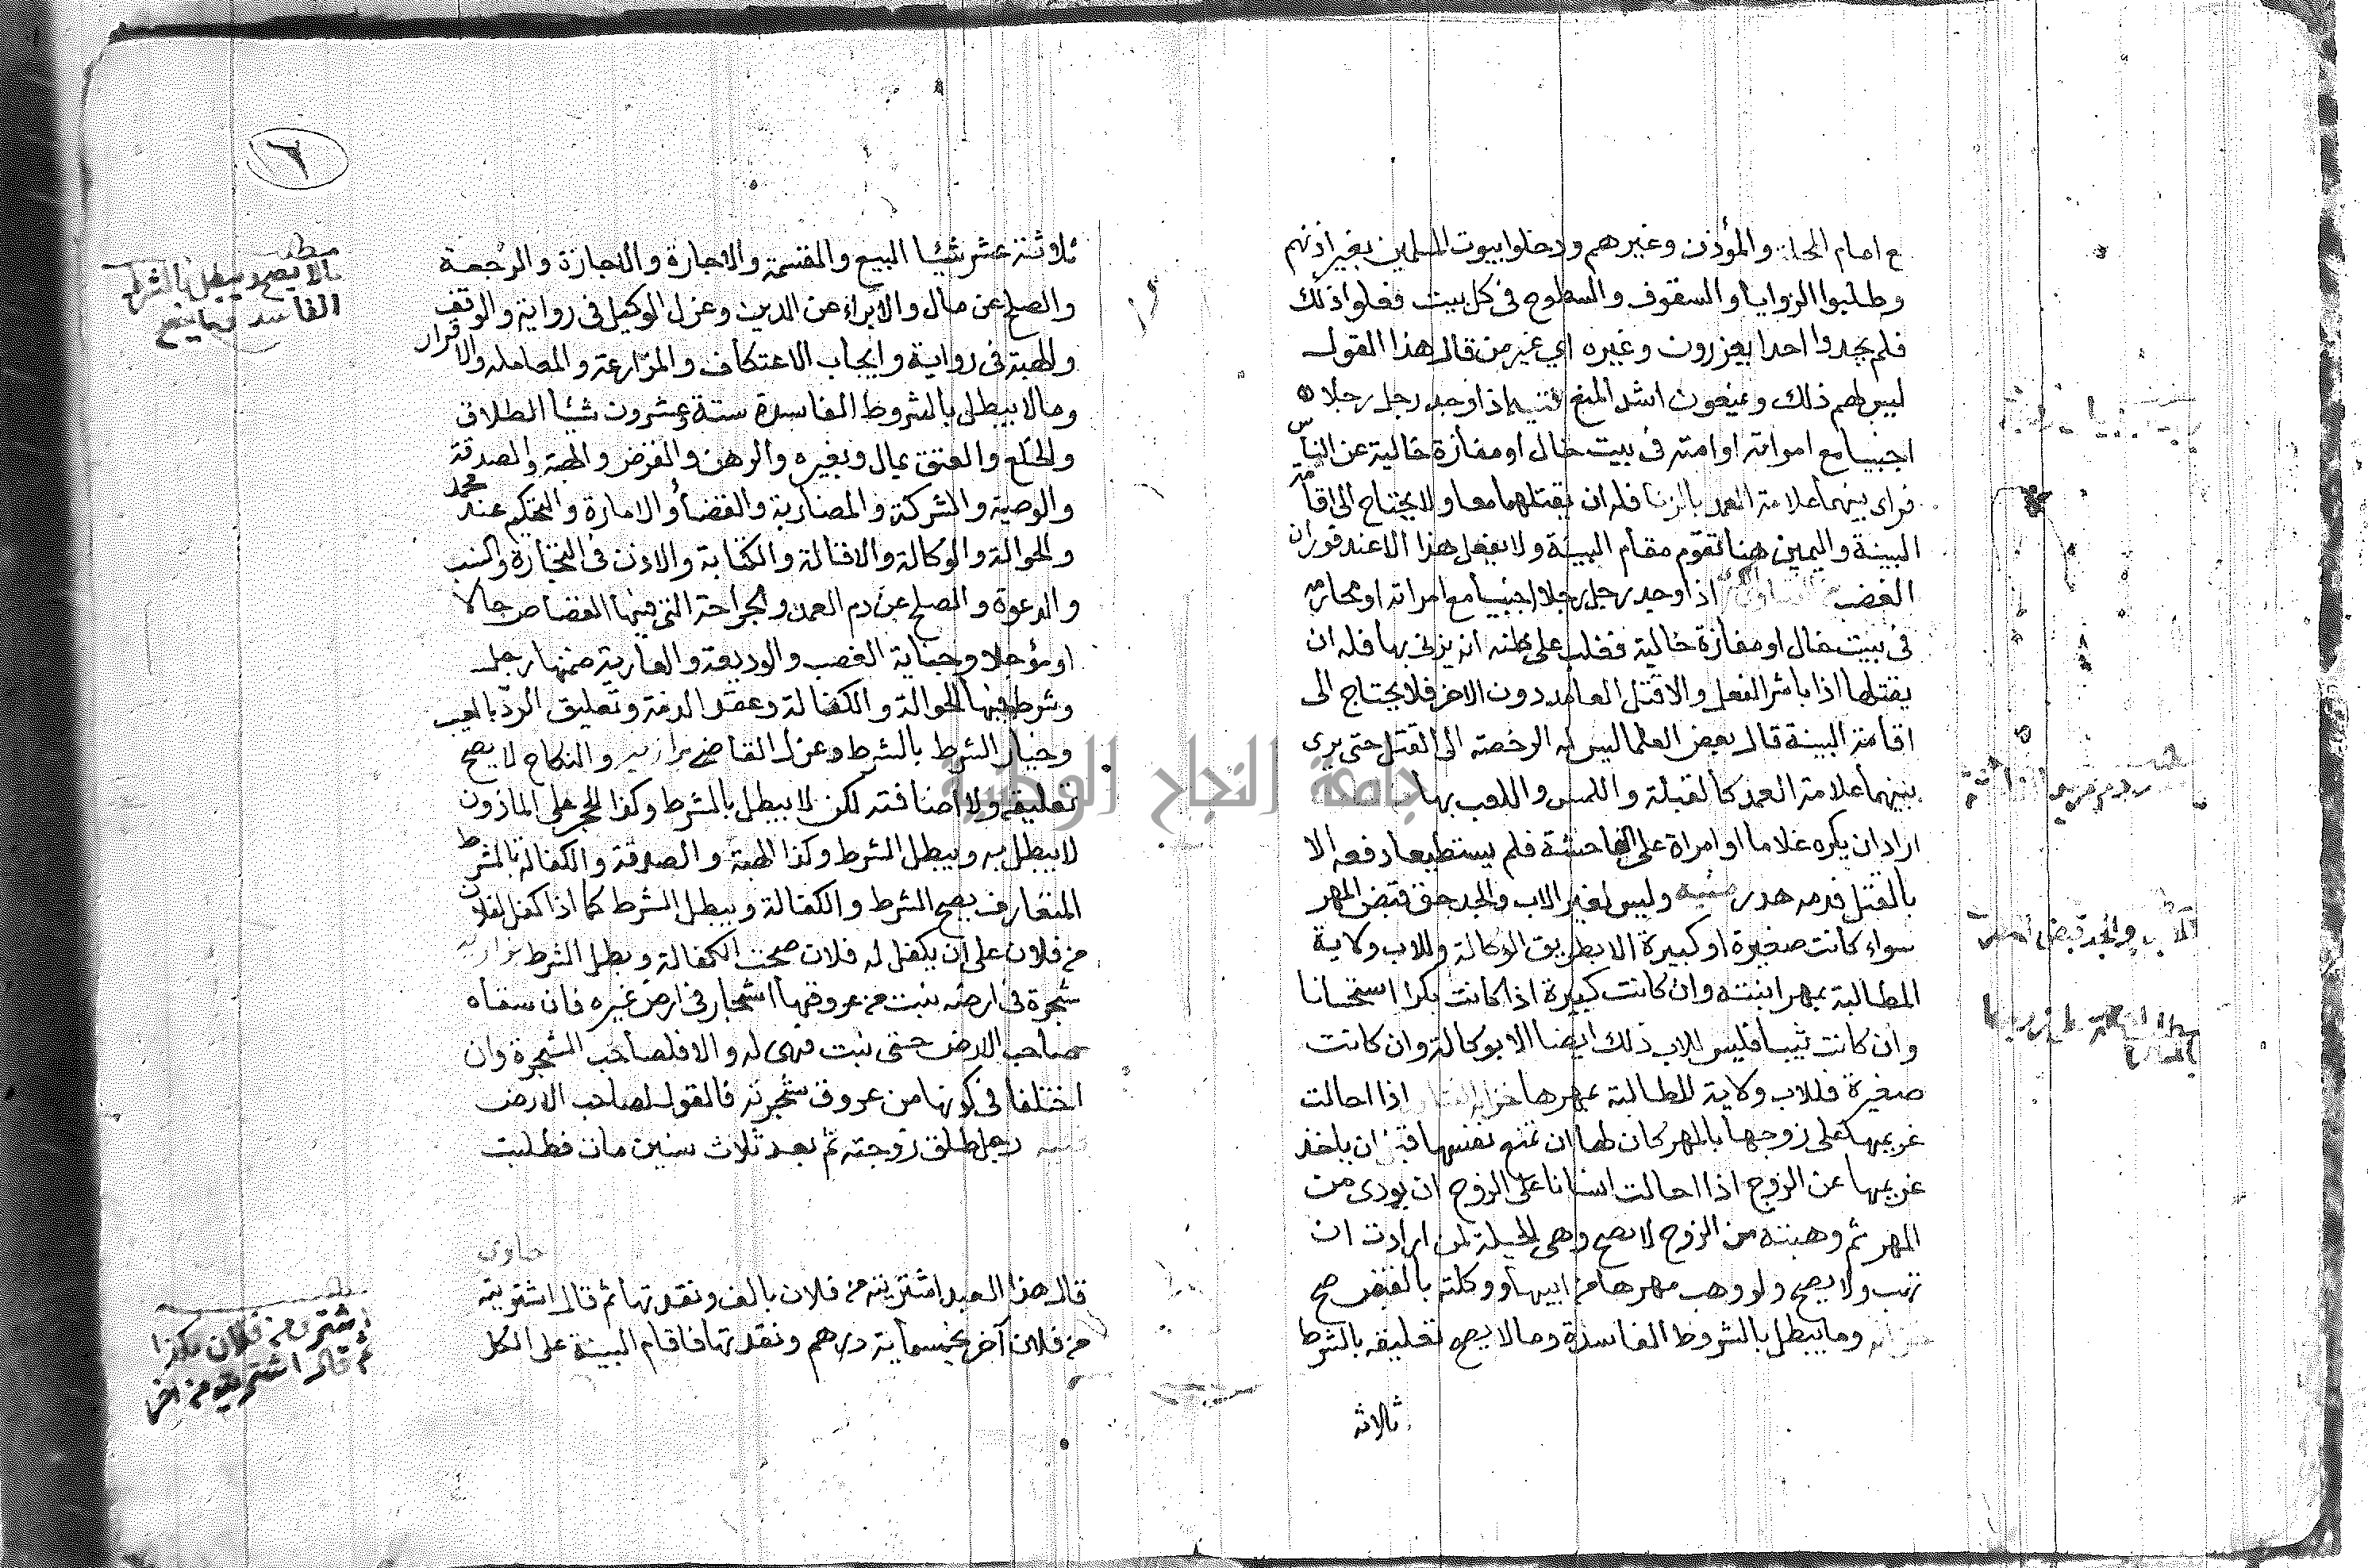 ع امام المحلة والمؤذن وغيرهم ودخلوا بيوت المسلمين بغير اذنهم
وطلبوا الزوايا والسقوف والسطوح فى كل بيت فعلوا ذلك
فلم يجدوا احدا يعزرون وغيره اي غير من قال هذا القول
ليس لهم ذلك ويمنعون اشد المنع اذا وجد رجل رجلا
اجنبيا مع امراته او امته فى بيت خال او مفازة خالية عن الناس
فراى بينهما علامة العمد بالزنا فله ان يقتلهما معا ولا يحتاج الى اقامة
البينة واليمين هنا تقوم مقام البينة ولا يفعل هذا الا عند فوران
الغضب اذا وجد رجل رجلا اجنبيا مع امراته او محارمه
فى بيت خال او مفازة خالية فغلب على ظنه انه يزنى بها فله ان
يقتلها اذا باشر الفعل والا قتل العامد دون الاخر فلا يحتاج الى
اقامة البينة قال بعض العلما ليس له الرخصة الى القتل حتى يرى
بينهما علامة العمد كالقبلة واللمس واللعب بها
اراد ان يكره غلاما او امراة على الفاحشة فلم يستطيعا دفعه الا
بالقتل فدمه هدر منيه وليس لغير الاب والجد حق قبض المهر
سواء كانت صغيرة او كبيرة الا بطريق الوكالة وللاب ولاية
المطالبة بمهر ابنته وان كانت كبيرة اذا كانت بكرا استحسانا
وان كانت ثيبا فليس للاب ذلك ايضا الا بوكالة وان كانت
صغيرة فللاب ولاية المطالبة بمهرها اذا احالت
غريمها على زوجها بالمهر كان لها ان تمنع نفسها ان ياخذ
غريمها عن الزوج اذا احالت انسانا على الزوج ان يودى من
المهر ثم وهبته من الزوج لا يصح وهى الحيلة لمن ارادت ان
تهب ولا يصح ولو وهب مهرها من ابيها ووكلته بالقبض صح
وما يبطل بالشروط الفاسدة وما لا يصح تعليقه بالشرط
ثلاثة
والجد قبض المهر
٦
ثلاثة عشر شيئا البيع والقسمة والاجارة والاجازة والرجعة
والصلح عن مال والابراء عن الدين وعزل الوكيل فى رواية والوقف
والهبة فى رواية وايجاب الاعتكاف والمزارعة والمعاملة والاقرار
وما لا يبطل بالشروط الفاسدة ستة وعشرون شيئا الطلاق
والخلع والعتق بمال وبغيره والرهن والقرض والهبة والصدقة
والوصية والشركة والمضاربة والقضاء والامارة والتحكيم عند محمد
والحوالة والوكالة والاقالة والكتابة والاذن فى التجارة والنسب
والدعوة والصلح عن دم العمد والجراحة التى فيها القصاص حالا
او مؤجلا وجناية الغصب والوديعة والعارية ضمنها رجل
وشرط فيها الحوالة والكفالة وعقد الذمة وتعليق الرد بالعيب
وخيار الشرط بالشرط وعزل القاضى بزازيه والنكاح لا يصح
تعليقه ولا اضافته لكن لا يبطل بالشرط وكذا الحجر على الماذون
لا يبطل به ويبطل الشرط وكذا الهبة والصدقة والكفالة بالشرط
المتعارف يصح الشرط والكفالة ويبطل الشرط كما اذا كفل لفلان
من فلان على ان يكفل له فلان صحت الكفالة وبطل الشرط بزازيه
شجرة فى ارضه نبت من عروقها اشجار فى ارض غيره فان سقاه
صاحب الارض حتى نبت فهى له والا فلصاحب الشجرة وان
اختلفا فى كونها من عروق شجرته فالقول لصاحب الارض
رجل طلق زوجته ثم بعد ثلاث سنين مات فطلبت
حاوى
قال هذا العبد اشتريته من فلان بالف ونقدتها ثم قال اشتريته
من فلان آخر بخمسماية درهم ونقدتها فاقام البينة على الكل
مطلب
مالا يصح ويبطل بالشرط
الفاسد وما يصح
مطلب
اشترى من فلان بكذا
ثم قال اشتريته من اخر
جامعة النجاح الوطنية